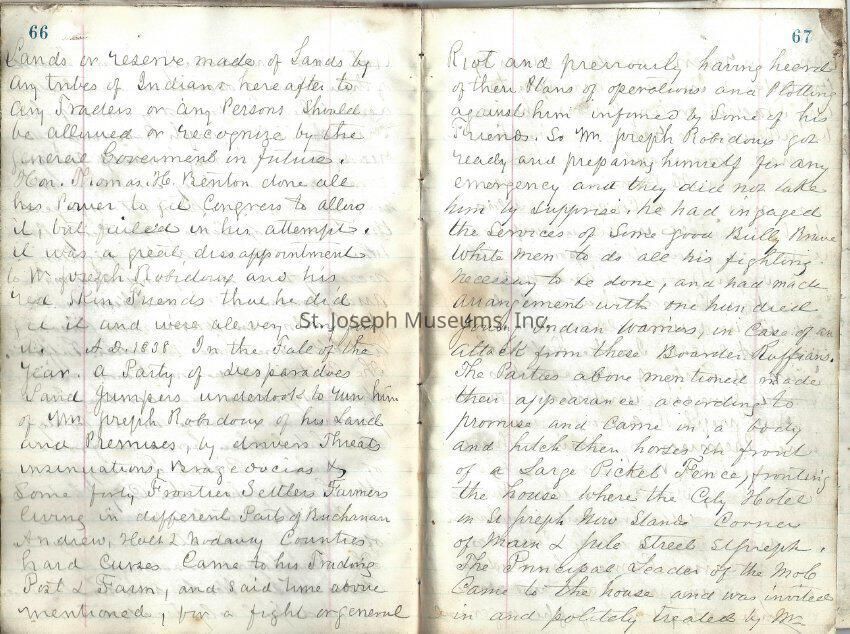 66
Lands or reserve made of Lands by
any tribes of Indians hereafter to
any Traders or any Persons Should
be allowed or recognize by the
general Goverment in future.
Hon. Thomas. H. Benton done all
his Power to git Congress to allow
it, but failed in his attempt.
it was a great dissappointment
to Mr Joseph Robidoux and his
red Skin Friends that he did
git it and were all very
A.D. 1838 In the Fall of the
Year. a Party of desparadoes
Land Jumpers undertook to run him
of Mr Joseph Robidoux of his Land
and Premises, by Threats
insinuations, &
Some forty Frontier Settlers Farmers
living in different Parts of Buchanan
Andrew, Holt & Nodaway Counties
hard Curses Came to his Trading
Post & Farm, and Said time above
mentioned, for a fight or general
67
Riot and previously having heard
of their Plans of operations and Plotting
against him informed by Some of his
Friends. So Mr Joseph Robidoux got
ready and preparing himself for any
emergency and they did not take
him by Supprise. he had ingaged
the Services of Some good Bully Brave
White men to do all his fighting
necessary to be done, and had made
arrangement with one hundred
Indian Warriers, in Case of an
attack from these Boarder Ruffians.
The Parties above mentioned made
their appearance according to
promise and Came in a body
and hitch their horses in front
of a Large Picket Fence, fronting
the house where the City Hotel
in St Joseph Now Stands Corner
of Main & Jule Street St Joseph.
The Principal Leader of the Mob
Came to the house and was invited
in and politely treated by Mr
St. Joseph Museums, Inc.